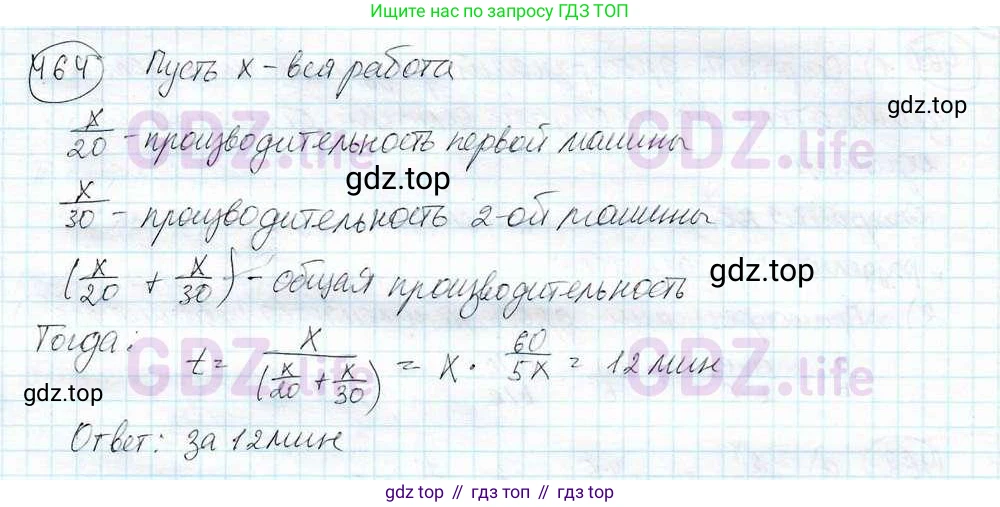 Ищите нас по запросу ГДЗ ТОП
464 Пусть x - вся работа
gdz.top
x/20 - производительность первой машины
gdz.top
x/30 - производительность 2-ой машины
(x/20 + x/30) - общая производительность
gdz.top
Тогда: t = x/(x/20 + x/30) = x · 60/5x = 12 мин
gdz.top
Ответ: за 12 мин
GDZ.life GDZ.life
GDZ.life GDZ.life
gdz top // гдз топ // гдз top